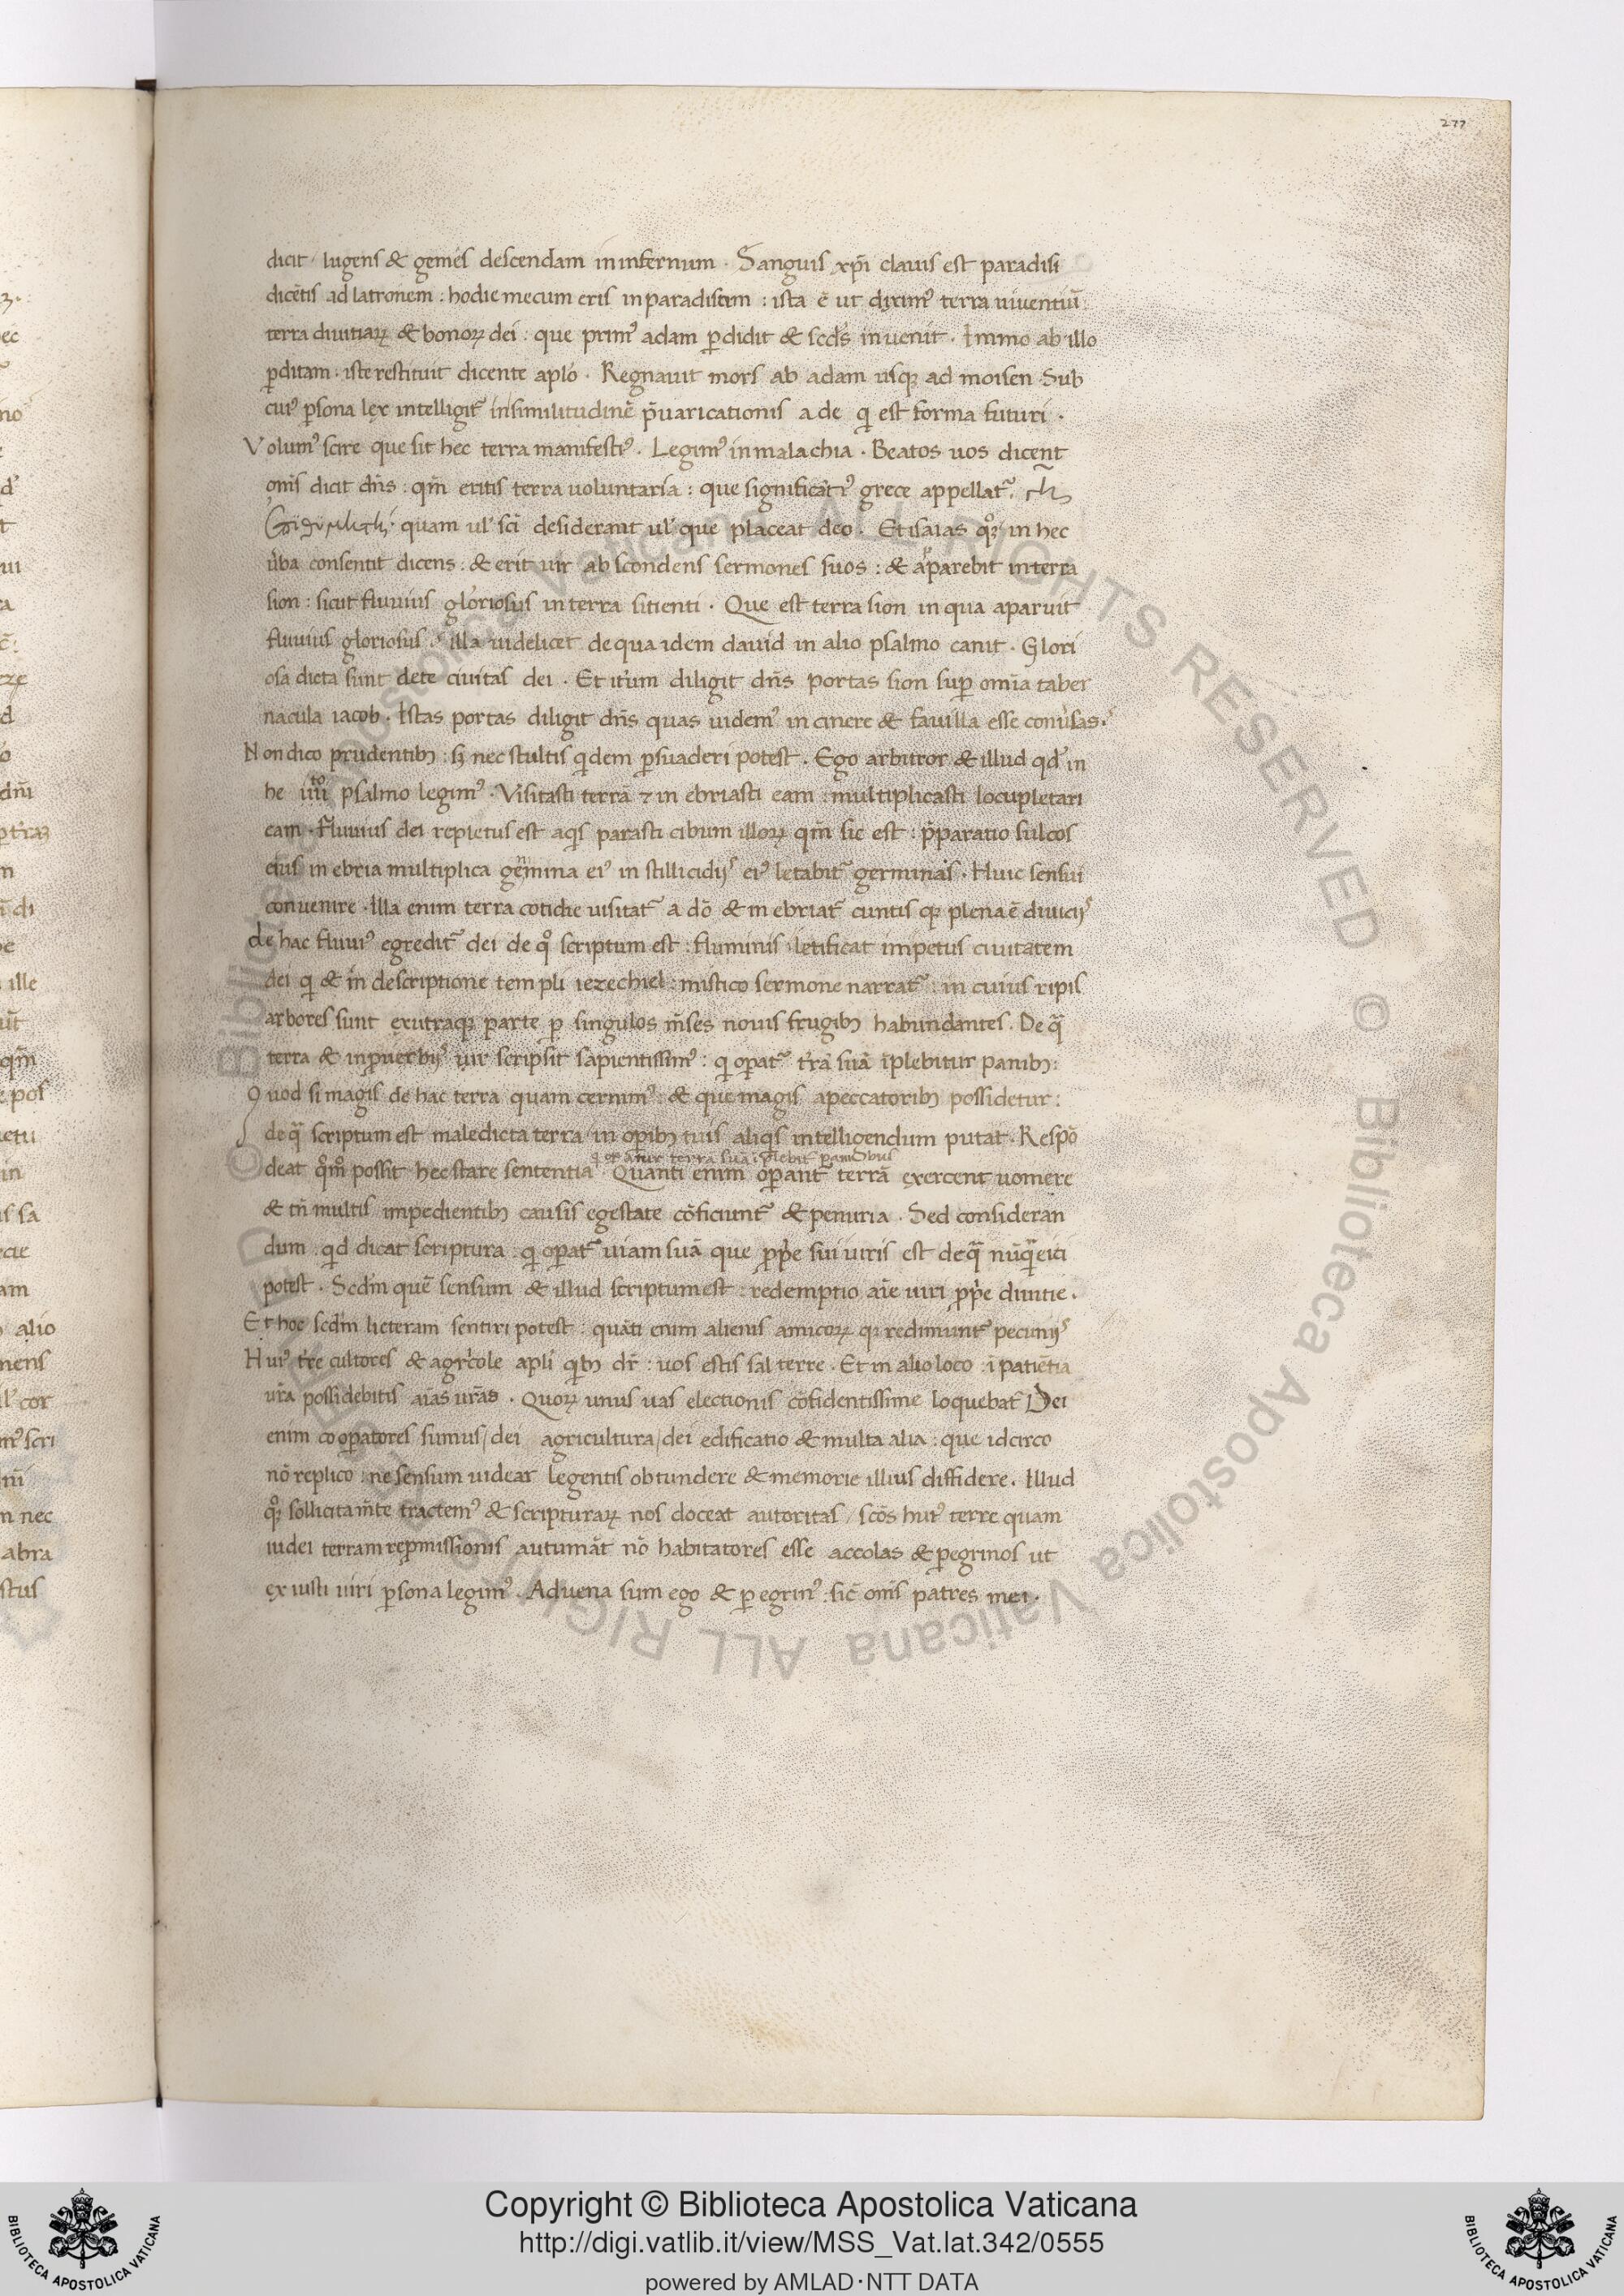 277
dicit / lugens & gemēs descendam in infernum . Sanguis xp̄i clauis est paradisi
dicētis ad latronem : hodie mecum eris in paradisum : ista ē ut diximꝰ terra uiuentiū
terra diuitiaꝝ & bonoꝝ dei : que primꝰ adam ꝑdidit & scd̄s inuenit . Immo ab illo
ꝑditam . iste restituit dicente aplō . Regnauit mors ab adam usqꝫ ad moisen Sub
cuiꝰ ꝑsona lex intelligit᷑ in similitudinē p̄uaricationis ade q̇ est forma futuri .
Volumꝰ scire que sit hec terra manifestiꝰ . Legimꝰ in malachia . Beatos uos dicent
om̄s dicit dn̄s : qm̄ eritis terra uoluntaria : que significātiꝰ grece appellat᷑
quam ul̓ sc̄i desiderant ul̓ que placeat deo . Et isaias qͦꝫ in hec
u̓ba consentit dicens : & erit uir abscondens sermones suos : & aparebit in terra
sion : sicut fluuius gloriosus in terra sitienti . Que est terra sion in qua aparuit
fluuius gloriosus . illa uidelicet de qua idem dauid in alio psalmo canit . Glori
osa dicta sunt de te ciuitas dei . Et iteꝛum diligit dn̄s portas sion suꝑ om̄ia taber
nacula iacob . Istas portas diligit dn̄s quas uidemꝰ in cinere & fauilla esse conu̓sas .
Non dico prudentibꝫ : sꝫ nec stultis q̇dem ꝑsuaderi potest . Ego arbitror & illud qd̓ in
psalmo legimꝰ . Visitasti terrā ⁊ in ebriasti eam : multiplicasti locupletari
eam . Fluuius dei repletus est aq̇s parasti cibum illoꝝ qm̄ sic est : p̄paratio sulcos
eius in ebria multiplica gemina eiꝰ in stillicidijs eiꝰ letabit᷑ germinās . Huic sensui
conuenire . Illa enim terra cotidie uisitat᷑ a dō & in ebriat᷑ cuntis qꝫ plena ē diuicijs
de hac fluuiꝰ egredit᷑ dei de qͦ scriptum est : fluminis letificat impetus ciuitatem
dei q̇ & in descriptione templi iezechiel : mistico sermone narrat᷑ : in cuius ripis
arbores sunt ex utraqꝫ parte ꝑ singulos m̄ses nouis frugibꝫ habundantes . De qᷓ
terra & in ꝓuerbijs uir scripsit sapientissimꝰ : q̇ oꝑat᷑ t̓rā suā īplebitur panibꝫ :
Quod si magis de hac terra quam cernimꝰ : & que magis a peccatoribꝫ possidetur :
de qᷓ scriptum est maledicta terra in oꝑibꝫ tuis aliq̇s intelligendum putat . Respō
q̇ oꝑatur terra suā īplebit᷑ panibus
deat qͦmͦ possit hec stare sententia . Quanti enim oꝑant᷑ terrā exercent uomere
& tn̄ multis impedientibꝫ causis egestate cōficiunt᷑ & penuria . Sed consideran
dum : qd̓ dicat scriptura : q̇ oꝑat᷑ uiam suā que pp̓e sui uiris est de qᷓ nūqᷓ eici
potest . Scd̄m quē sensum & illud scriptum est : redemptio aīe uiri pp̓e diuitie .
Et hoc scd̄m licteram sentiri potest : quāti enim alienis amicoꝝ qͥ redimunt᷑ pecunijs
Huiꝰ t̓re cultores & agricole apl̓i q̇bꝫ dr̄ : uos estis sal terre . Et in alio loco : ī patiētia
ur̄a possidebitis aīas ur̄as . Quoꝝ unus uas electionis cōfidentissime loquebat᷑ Dei
enim cooꝑatores sumus / dei agricultura / dei edificatio & multa alia : que idcirco
nō replico : ne sensum uidear legentis obtundere & memorie illius diffidere . Illud
qͦꝫ sollicitam̄te tractemꝰ & scripturaꝝ nos doceat autoritas / scōs huiꝰ terre quam
iudei terram reꝓmissionis autumāt nō habitatores esse accolas & ꝑegrinos ut
ex iusti uiri ꝑsona legimꝰ . Aduena sum ego & ꝑegrinꝰ : sic̄ om̄s patres mei .
Copyright © Biblioteca Apostolica Vaticana
http://digi.vatlib.it/view/MSS_Vat.lat.342/0555
powered by AMLAD·NTT DATA
BIBLIOTECA APOSTOLICA VATICANA
BIBLIOTECA APOSTOLICA VATICANA
© Biblioteca Apostolica Vaticana ALL RIGHTS RESERVED © Biblioteca Apostolica Vaticana ALL RIGHTS RESERVED